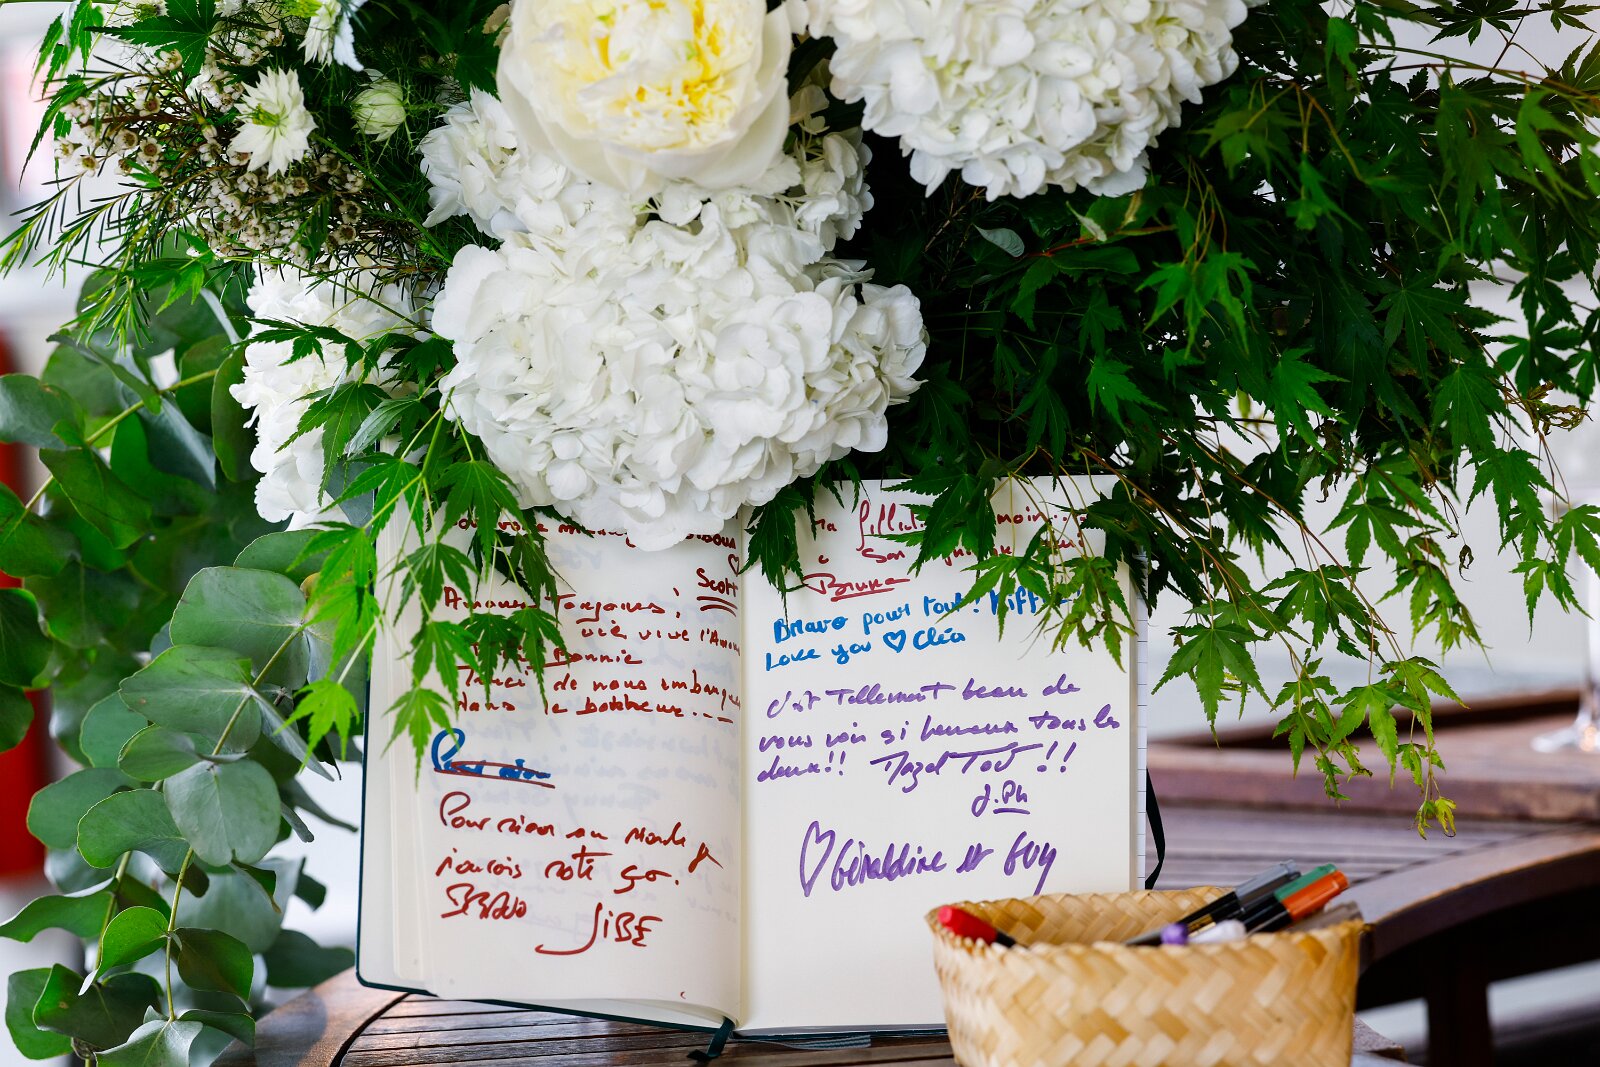 Scott
Amour Toujours !
vie vive l'Amour
Bonnie
Merci de nous embarquer
dans le bonheur...
Pour rien
Pour rien au monde je
j'aurois raté ça.
BRAVO
JiBE
Ma
son
Bruna
Bravo pour tout ! Kiff
Love you ♡ Cléa
c'est tellement beau de
vous voir si heureux tous les
deux !! Mazel Tov !!
J.Ph
♡ Géraldine et Guy